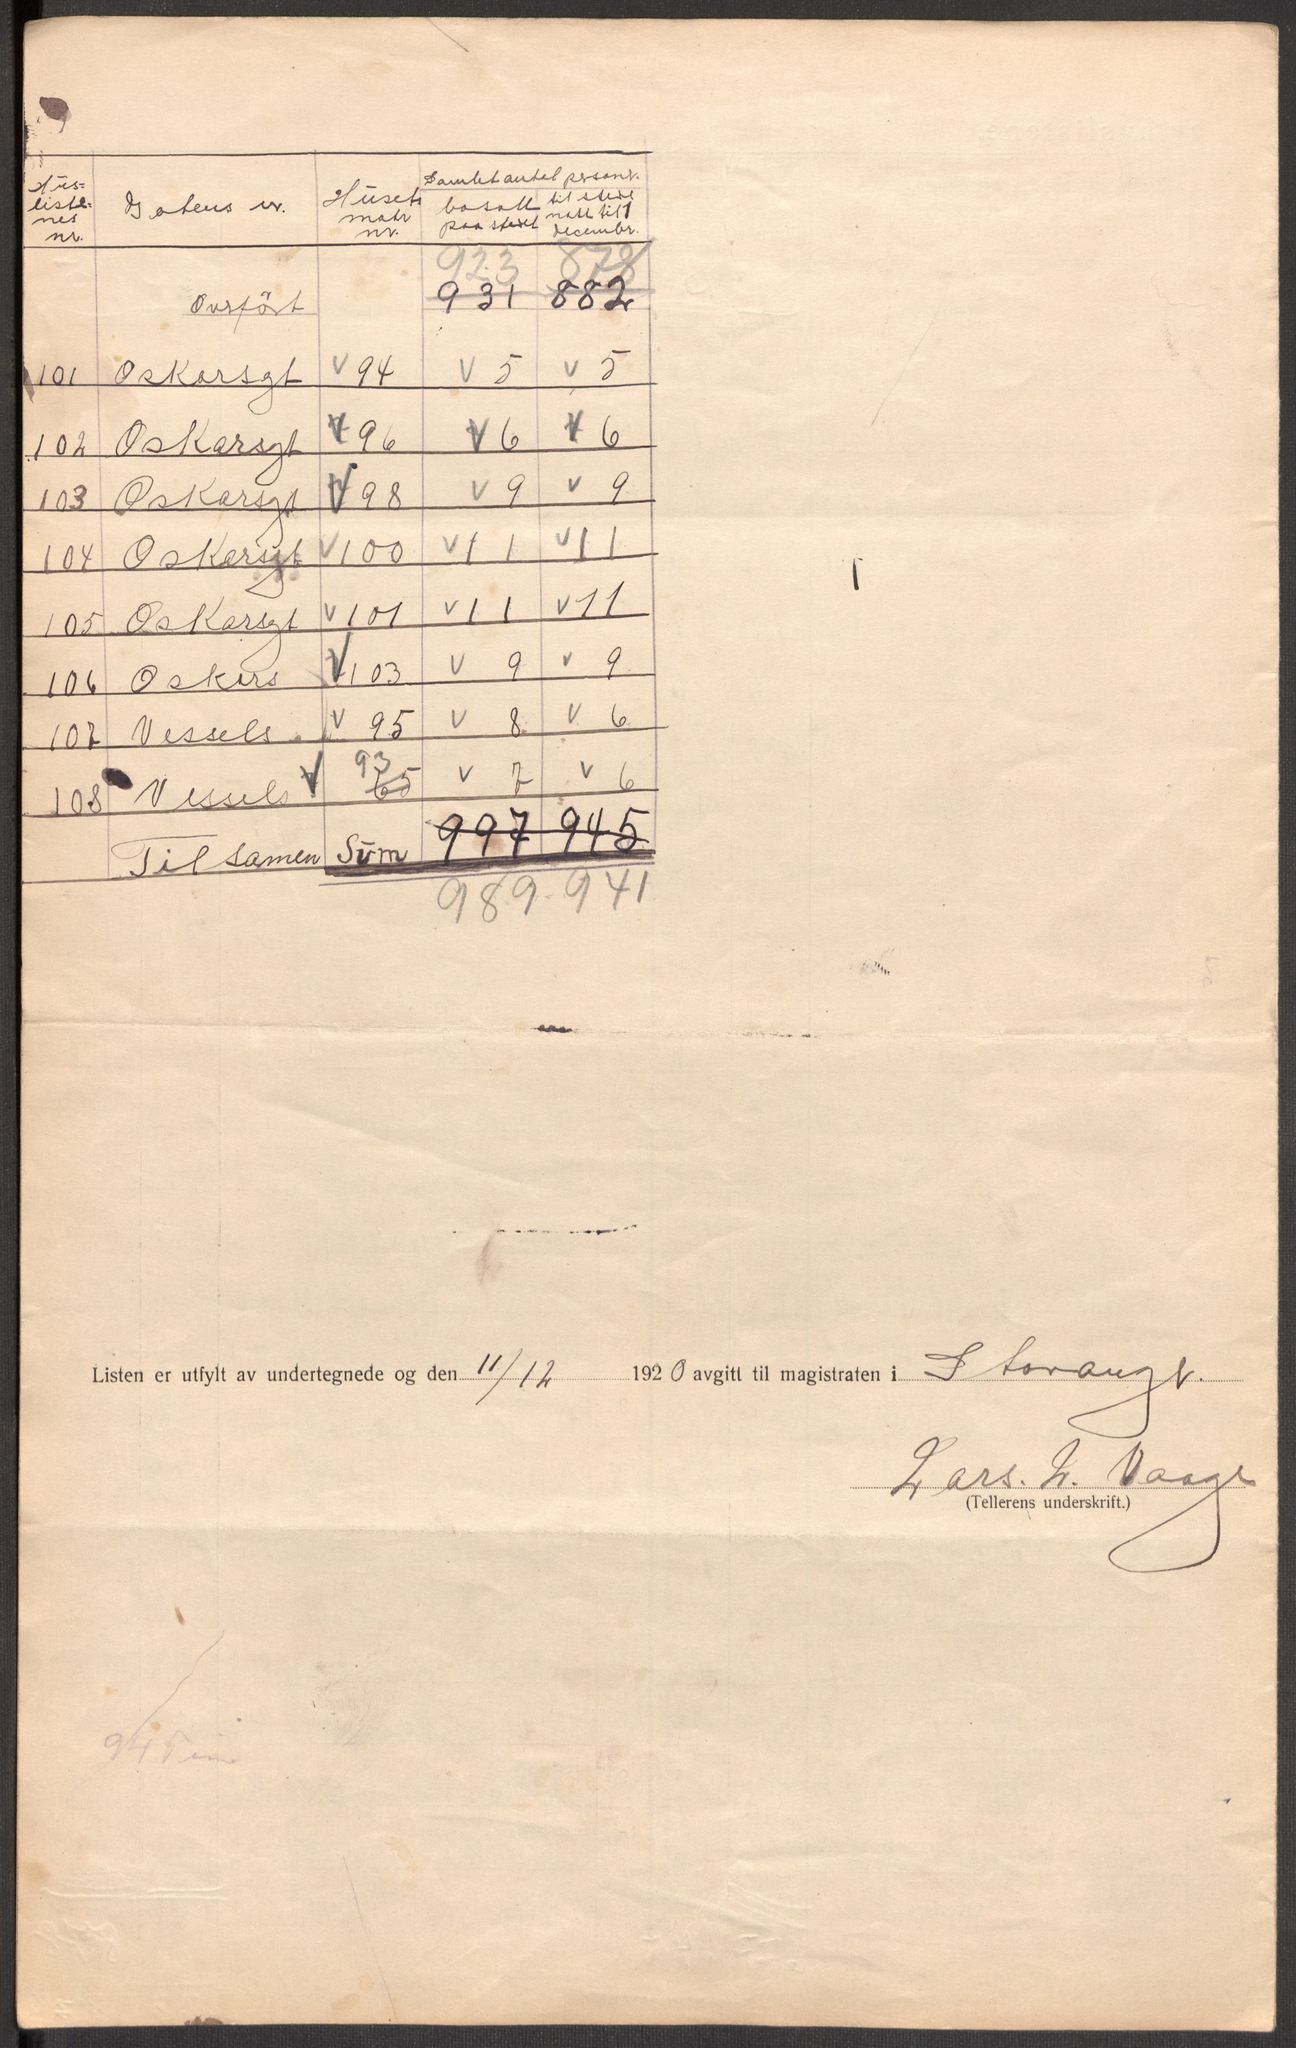 Hus-
liste-
nes
nr. Gatens nr. Husets
matr
nr. Samlet antal personr.
bosatt
paa stedet til stede
natt til 1
decembr.
923 878
Overfört 931 882
101 Oskarsgt V 94 V 5 V 5
102 Oskarsgt V 96 V 6 V 6
103 Oskarsgt V 98 V 9 V 9
104 Oskarsgt V 100 V 11 V 11
105 Oskarsgt V 101 V 11 V 11
106 Oskers V 103 V 9 V 9
107 Vessels V 95 V 8 V 6
93
108 Vessels V 65 V 7 V 6
Til samen Sum 997 945
989 941
Listen er utfylt av undertegnede og den 11/12 1920 avgitt til magistraten i Stavanger.
Lars. L. Vaage
(Tellerens underskrift.)